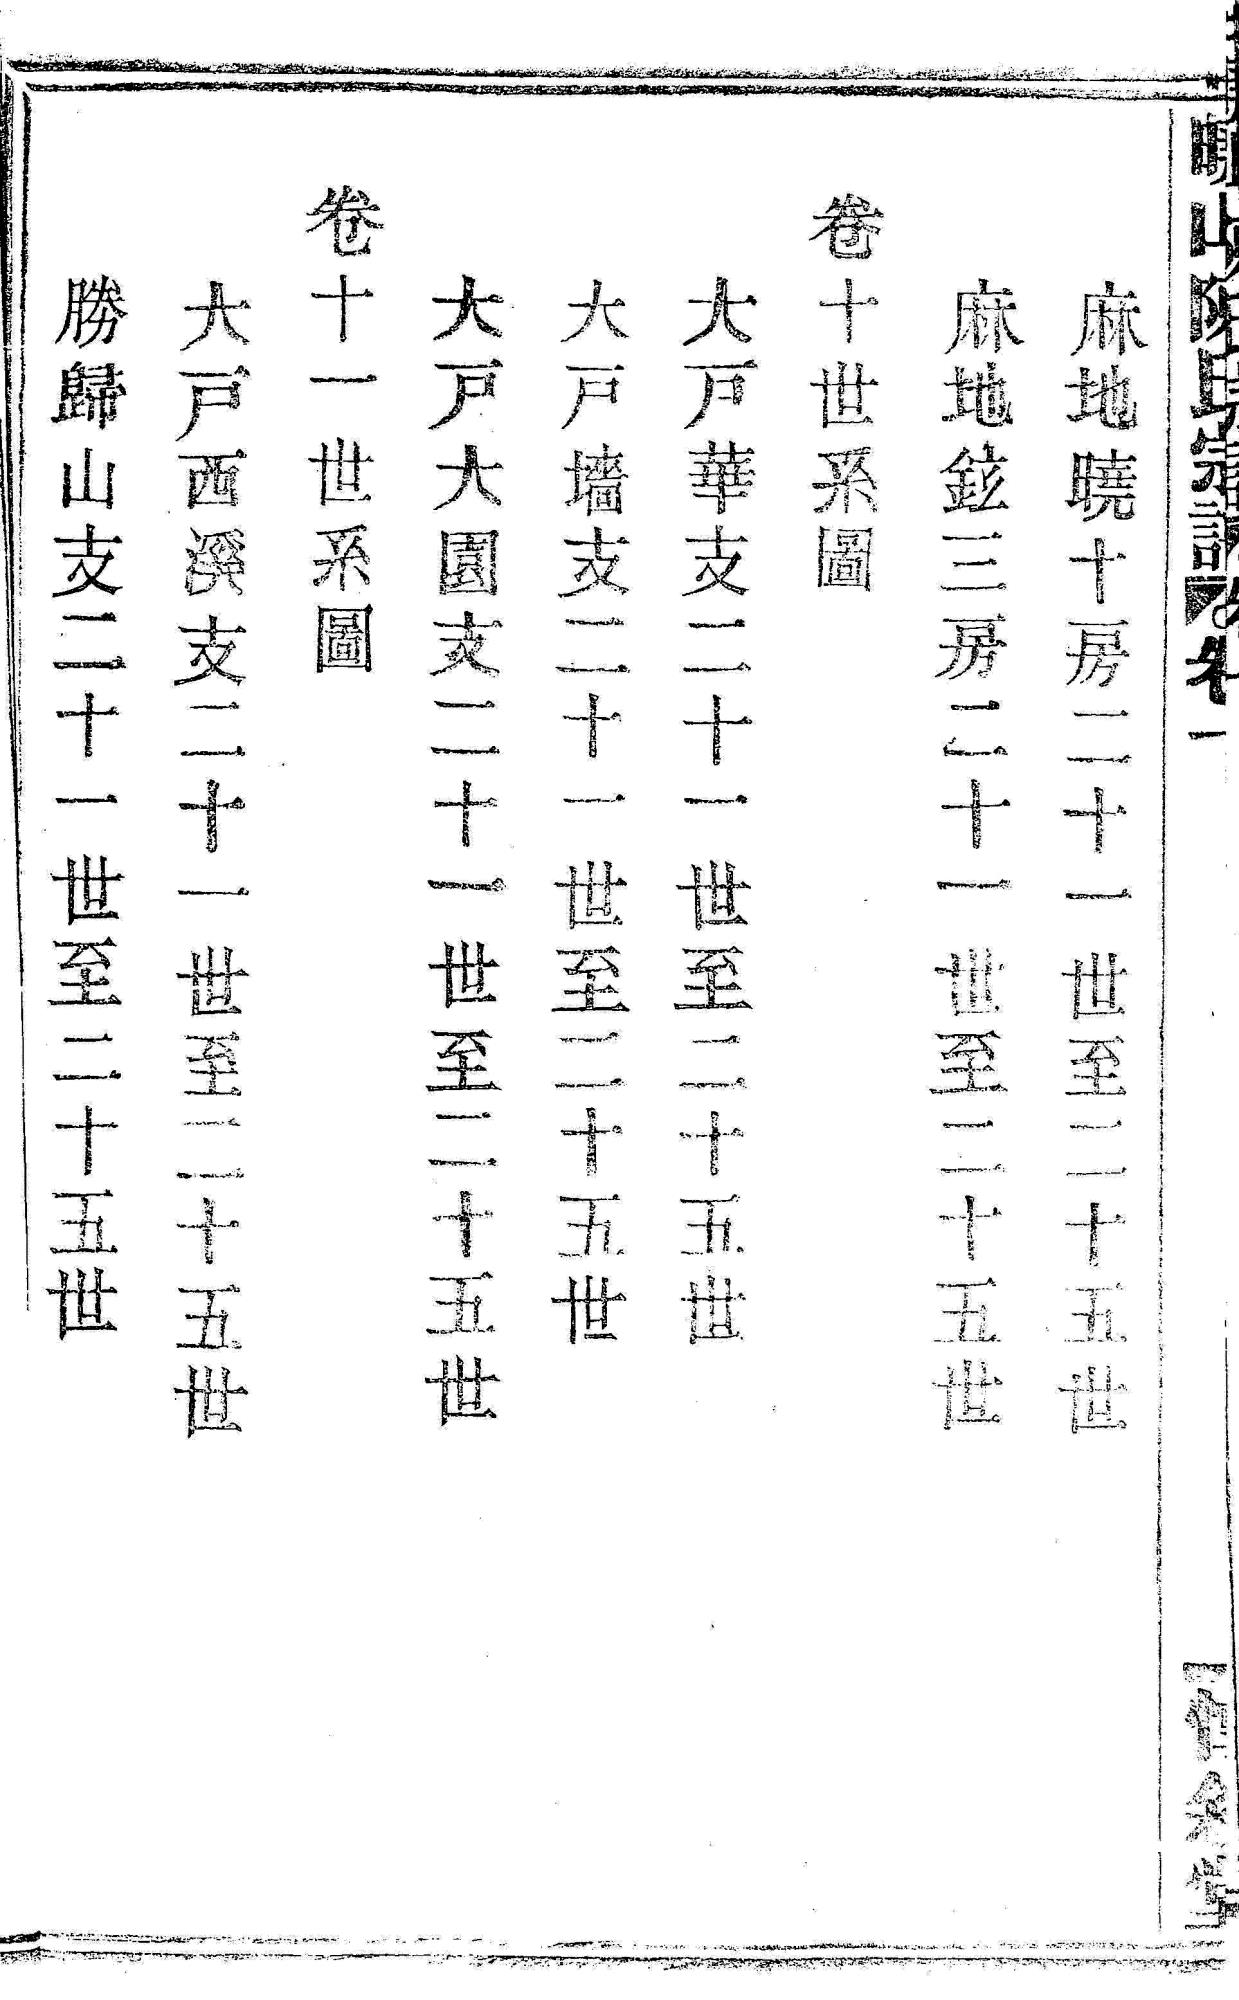 麻地曉十房二十一世至二十五世
麻地鉉三房二十一世至二十五世
卷十世系圖
大戸華支二十一世至二十五世
大戸墻支二十一世至二十五世
大戸大園支二十一世至二十五世
卷十一世系圖
大戸西溪支二十一世至二十五世
勝歸山支二十一世至二十五世